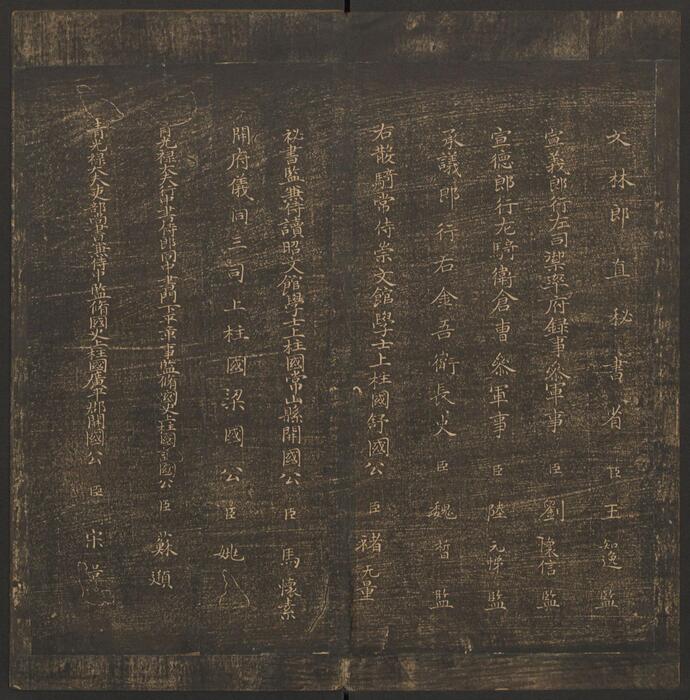 文林郎直秘書省臣王知逸監
宣義郎行左司禦率府録事叅軍事臣劉懷信監
宣徳郎行左驍衛倉曹叅軍事臣陸元悌監
承議郎行右金吾衛長史臣魏晢監
右散騎常侍崇文館學士上柱國舒國公臣褚无量
祕書監兼侍讀昭文館學士上柱國常山縣開國公臣馬懷素
開府儀同三司上柱國梁國公臣姚
青光禄大夫中書侍郎同中書門下平章事監脩國史上柱國許國公臣蘇頲
青光禄大夫吏部尚書兼侍中監脩國史上柱國廣平郡開國公臣宋